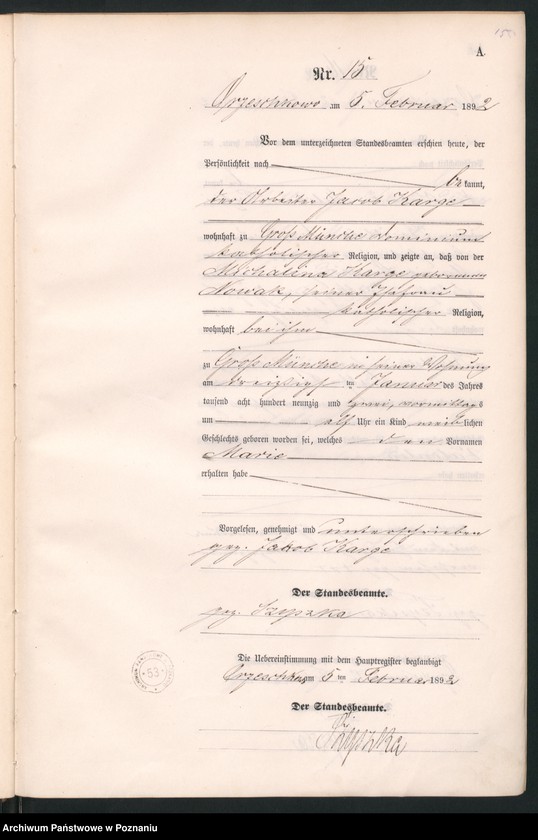 A
Nr. 15
Orzeschkowo am 5. Februar 1892
Vor dem unterzeichneten Standesbeamten erschien heute, der
Persönlichkeit nach
bekannt,
der Arbeiter Jacob Karge
wohnhaft zu Groß Münche Dominium
katholischer Religion, und zeigte an, daß von der
Michalina Karge geborenen
Nowak, seiner Ehefrau
katholischer Religion,
wohnhaft bei ihm
zu Groß Münche in seiner Wohnung
am dreißigsten Januar des Jahres
tausend acht hundert neunzig und zwei, vormittags
um elf Uhr ein Kind weiblichen
Geschlechts geboren worden sei, welches den Vornamen
Marie
erhalten habe
Vorgelesen, genehmigt und unterschrieben
gez. Jakob Karge
Der Standesbeamte.
gez. Szyszka
Die Uebereinstimmung mit dem Hauptregister beglaubigt
Orzeschkowo am 5ten Februar 1892
Der Standesbeamte.
Szyszka
53
Archiwum Państwowe w Poznaniu